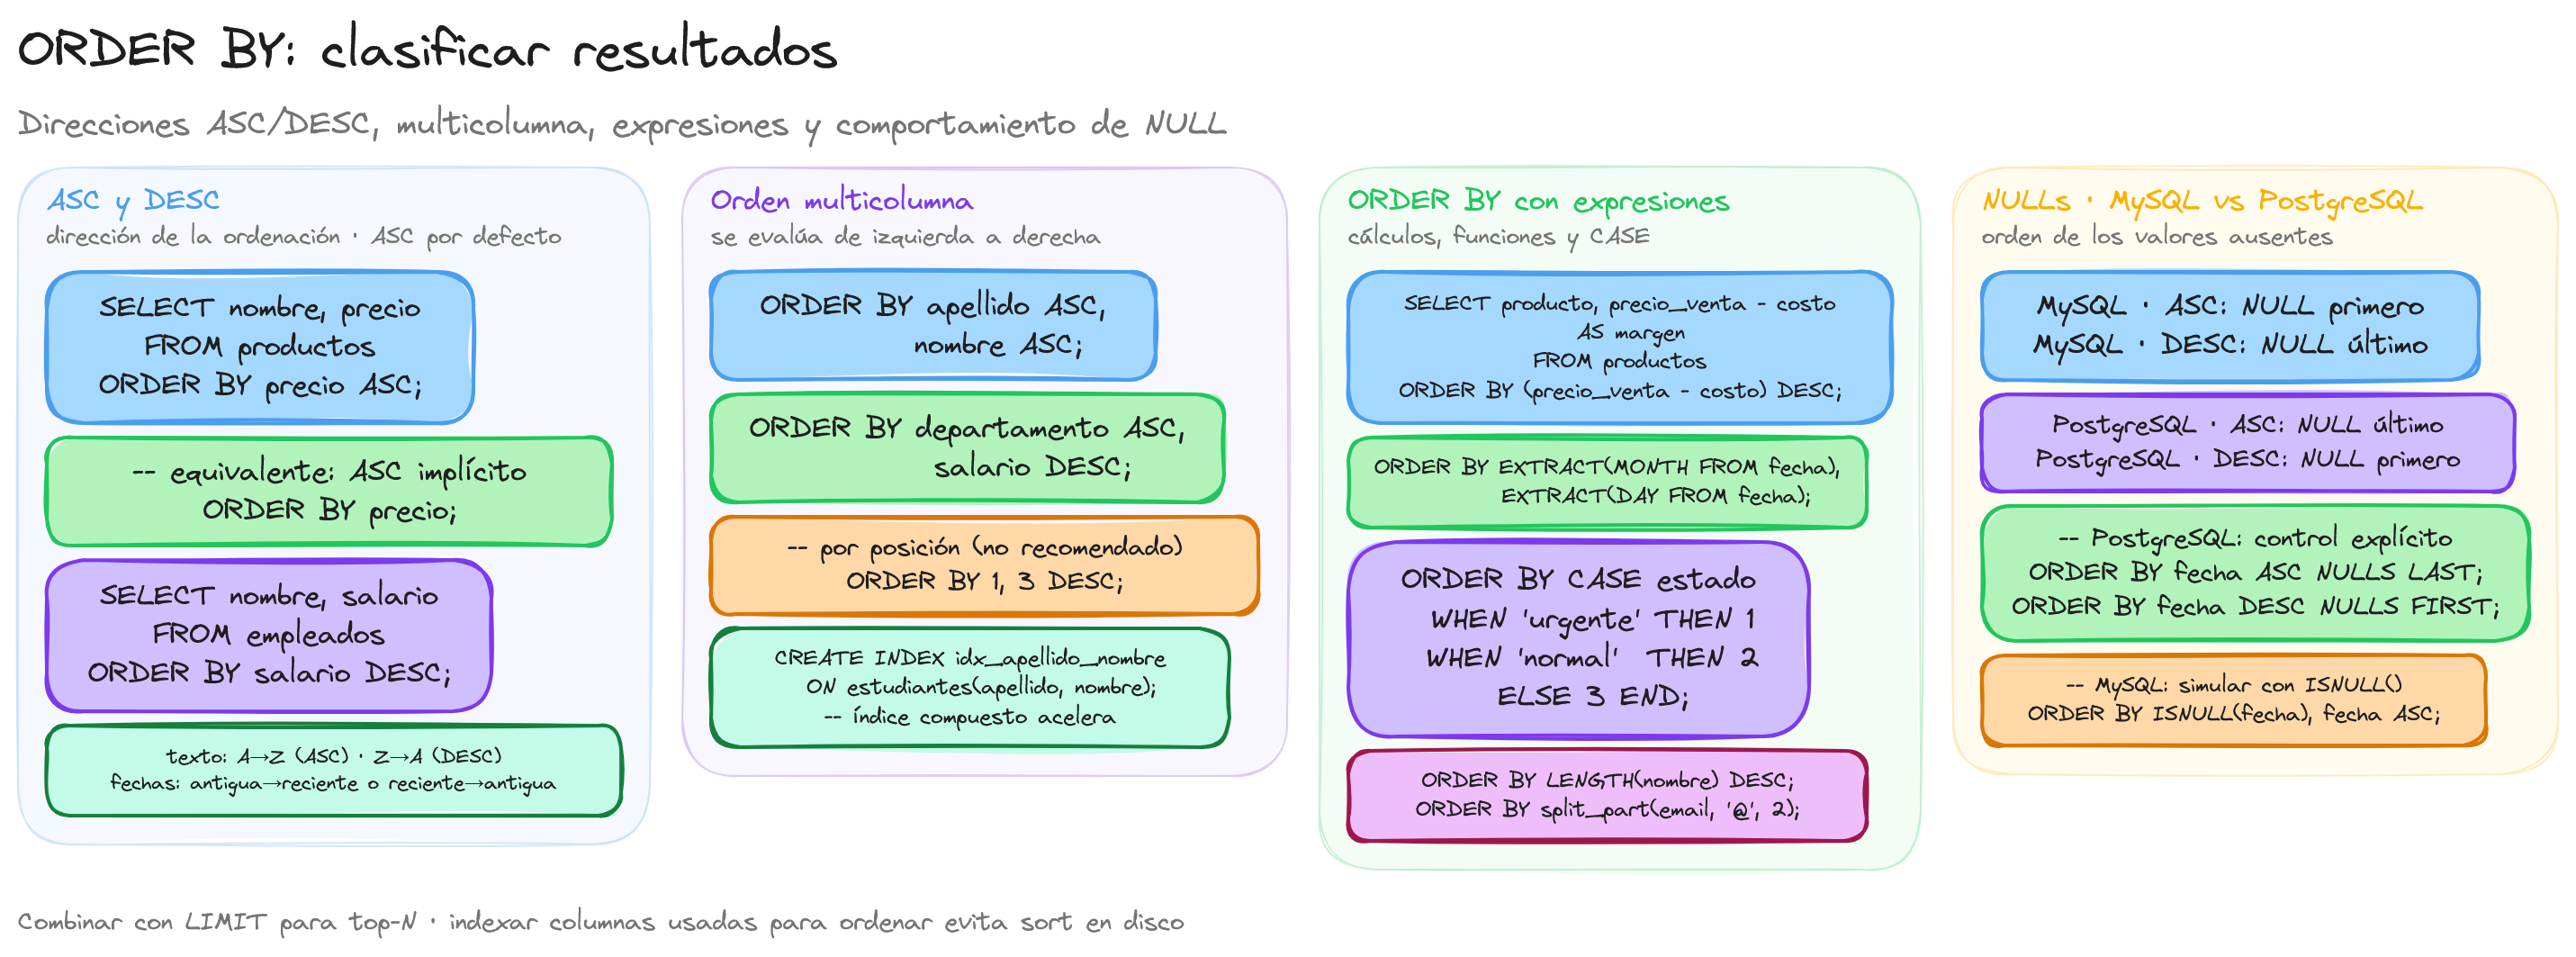 ORDER BY: clasificar resultados
Direcciones ASC/DESC, multicolumna, expresiones y comportamiento de NULL
ASC y DESC
dirección de la ordenación · ASC por defecto
SELECT nombre, precio
FROM productos
ORDER BY precio ASC;
-- equivalente: ASC implícito
ORDER BY precio;
SELECT nombre, salario
FROM empleados
ORDER BY salario DESC;
texto: A→Z (ASC) · Z→A (DESC)
fechas: antigua→reciente o reciente→antigua
Orden multicolumna
se evalúa de izquierda a derecha
ORDER BY apellido ASC,
nombre ASC;
ORDER BY departamento ASC,
salario DESC;
-- por posición (no recomendado)
ORDER BY 1, 3 DESC;
CREATE INDEX idx_apellido_nombre
ON estudiantes(apellido, nombre);
-- índice compuesto acelera
ORDER BY con expresiones
cálculos, funciones y CASE
SELECT producto, precio_venta - costo
AS margen
FROM productos
ORDER BY (precio_venta - costo) DESC;
ORDER BY EXTRACT(MONTH FROM fecha),
EXTRACT(DAY FROM fecha);
ORDER BY CASE estado
WHEN 'urgente' THEN 1
WHEN 'normal' THEN 2
ELSE 3 END;
ORDER BY LENGTH(nombre) DESC;
ORDER BY split_part(email, '@', 2);
NULLs · MySQL vs PostgreSQL
orden de los valores ausentes
MySQL · ASC: NULL primero
MySQL · DESC: NULL último
PostgreSQL · ASC: NULL último
PostgreSQL · DESC: NULL primero
-- PostgreSQL: control explícito
ORDER BY fecha ASC NULLS LAST;
ORDER BY fecha DESC NULLS FIRST;
-- MySQL: simular con ISNULL()
ORDER BY ISNULL(fecha), fecha ASC;
Combinar con LIMIT para top-N · indexar columnas usadas para ordenar evita sort en disco